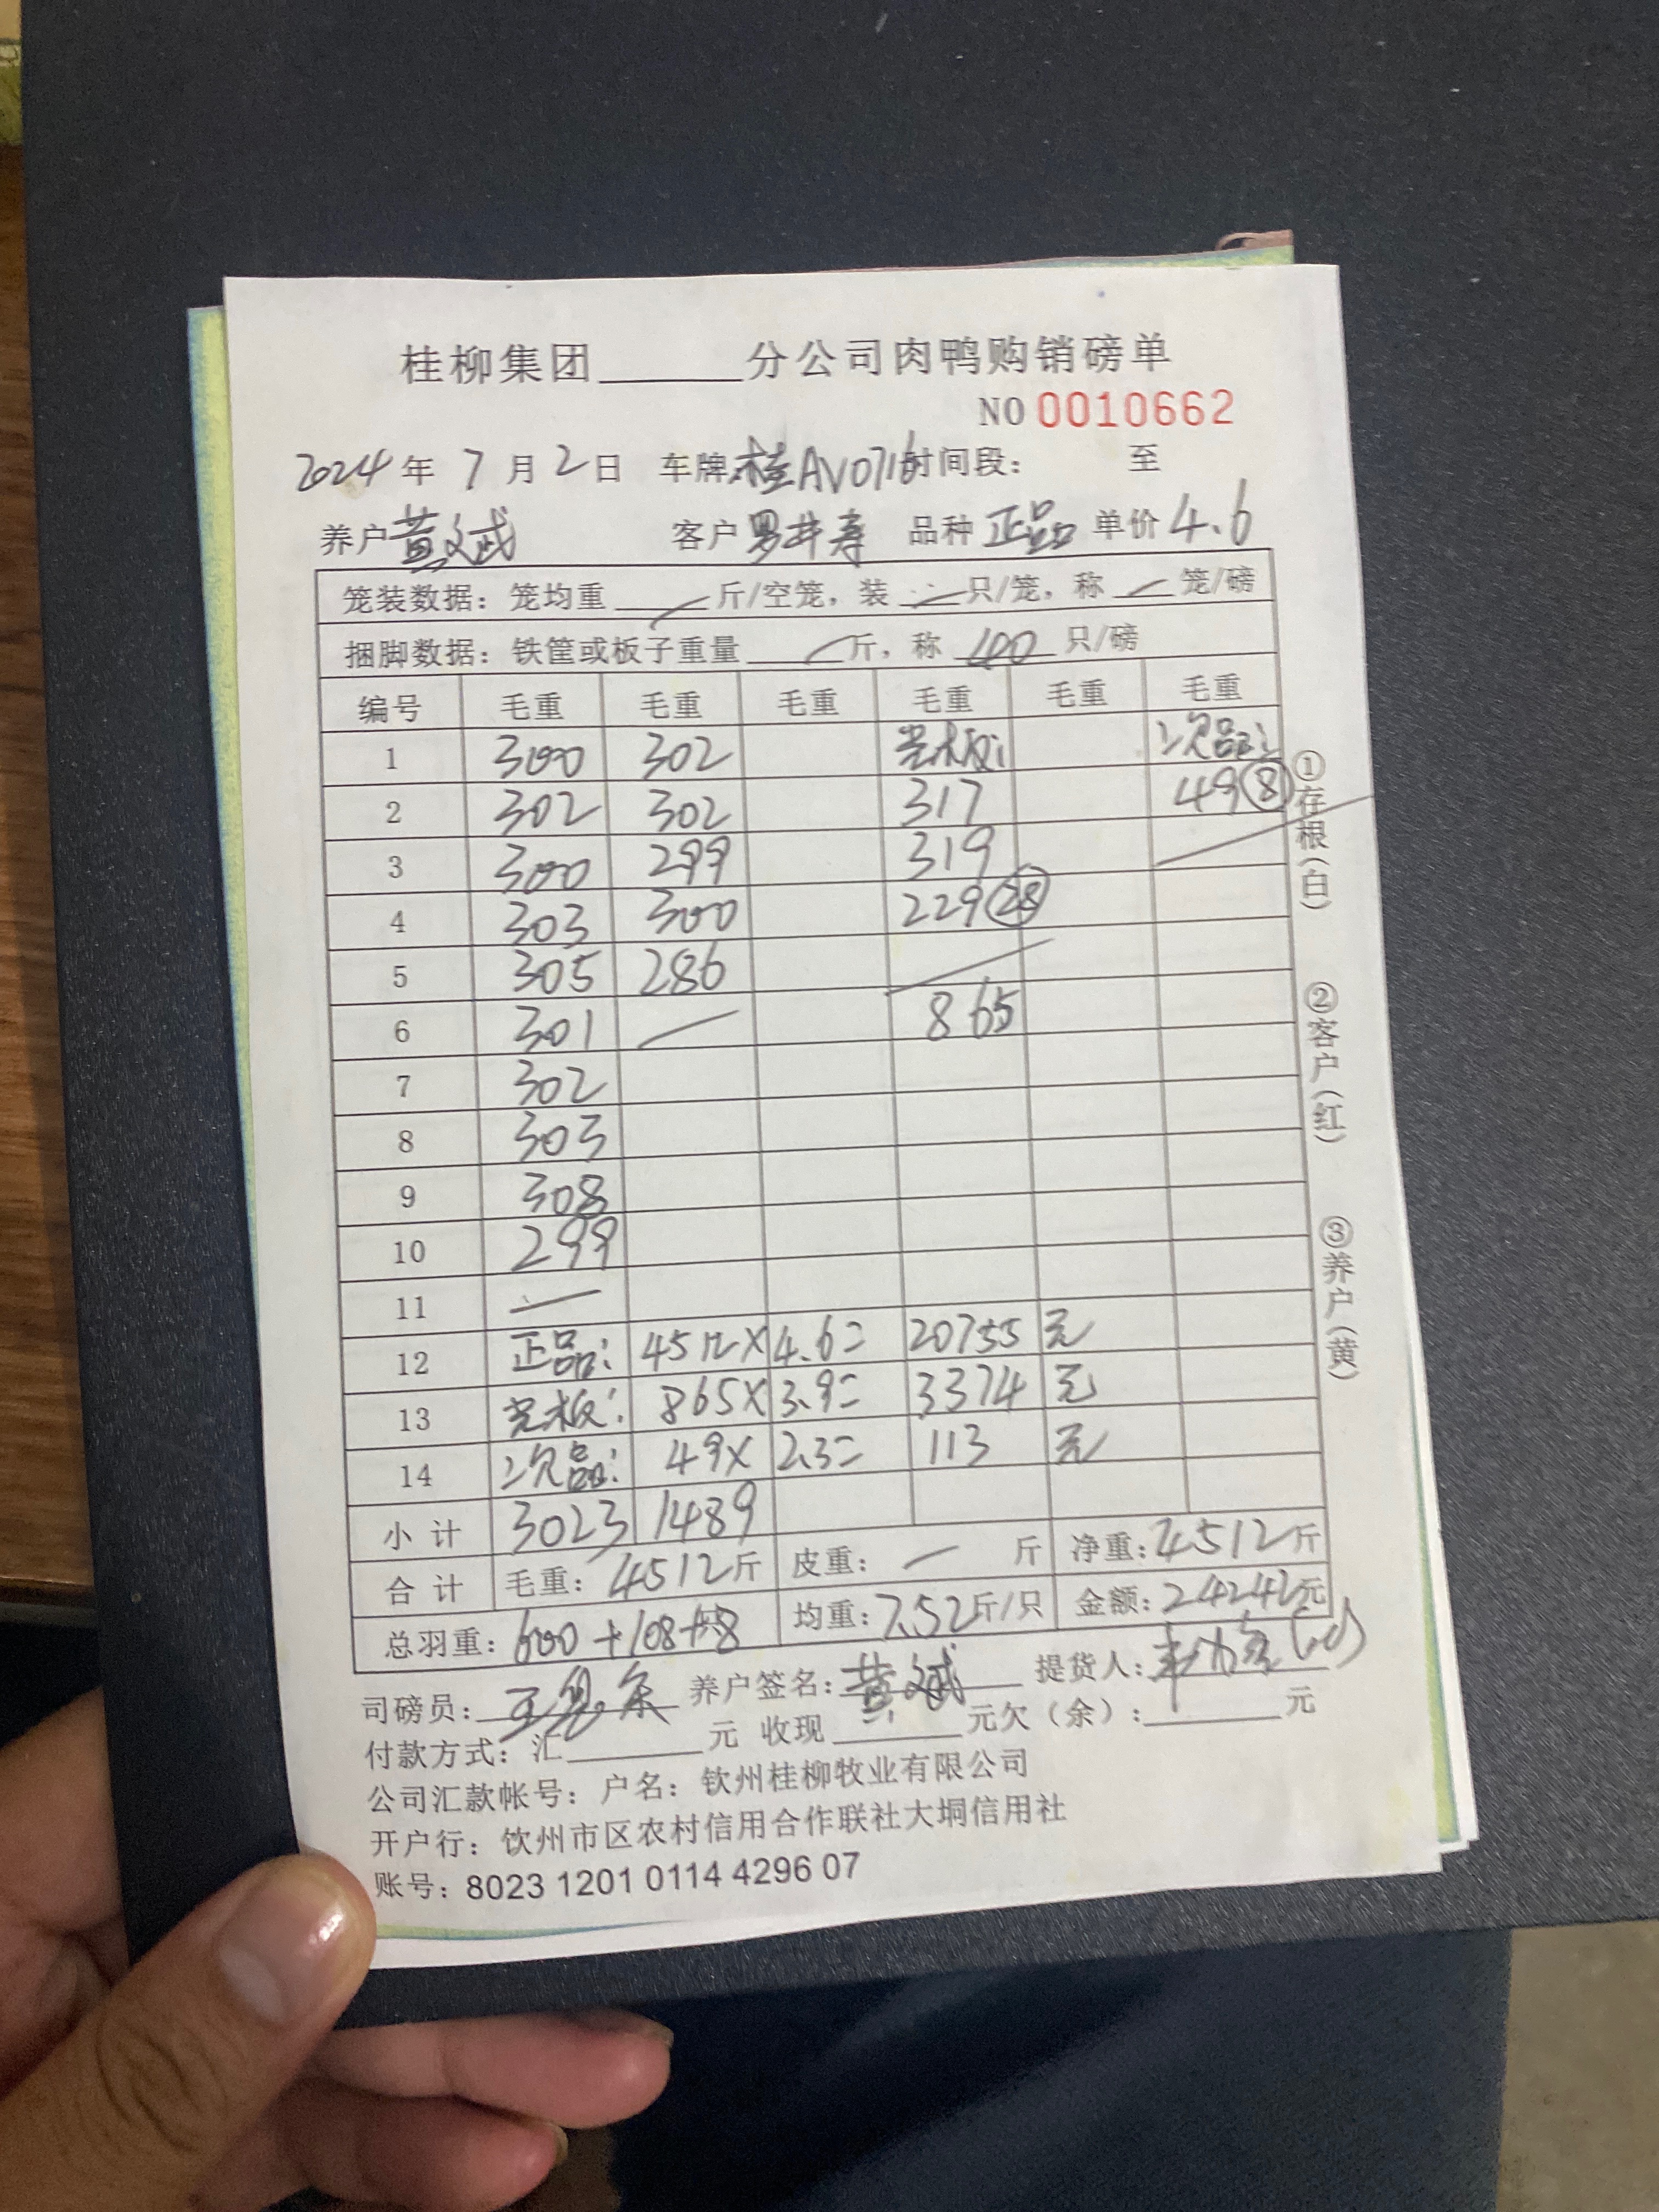 桂柳集团______分公司肉鸭购销磅单
NO 0010662
2024 年 7 月 2 日 车牌:桂AV0716 时间段: 至
养户 黄斌 客户 品种 正品 单价 4.6
笼装数据:笼均重 — 斤/空笼,装 — 只/笼,称 — 笼/磅
捆脚数据:铁筐或板子重量 — 斤,称 40 只/磅
编号 毛重 毛重 毛重 毛重 毛重 毛重
1 300 302 光板: 次品:
2 302 302 317 49⑧
3 300 299 319
4 303 300 229㉘
5 305 286
6 301 — 865
7 302
8 303
9 308
10 299
11 —
12 正品: 4512× 4.6= 20755 元
13 光板: 865× 3.9= 3374 元
14 次品: 49× 2.3= 113 元
小计 3023 1489
合计 毛重:4512斤 皮重:— 斤 净重:4512斤
总羽重:600+108+8 均重:7.52斤/只 金额:24242元
司磅员: 养户签名:黄斌 提货人:
付款方式:汇______元 收现______元欠(余):______元
公司汇款帐号:户名:钦州桂柳牧业有限公司
开户行:钦州市区农村信用合作联社大垌信用社
账号:8023 1201 0114 4296 07
①存根(白)
②客户(红)
③养户(黄)